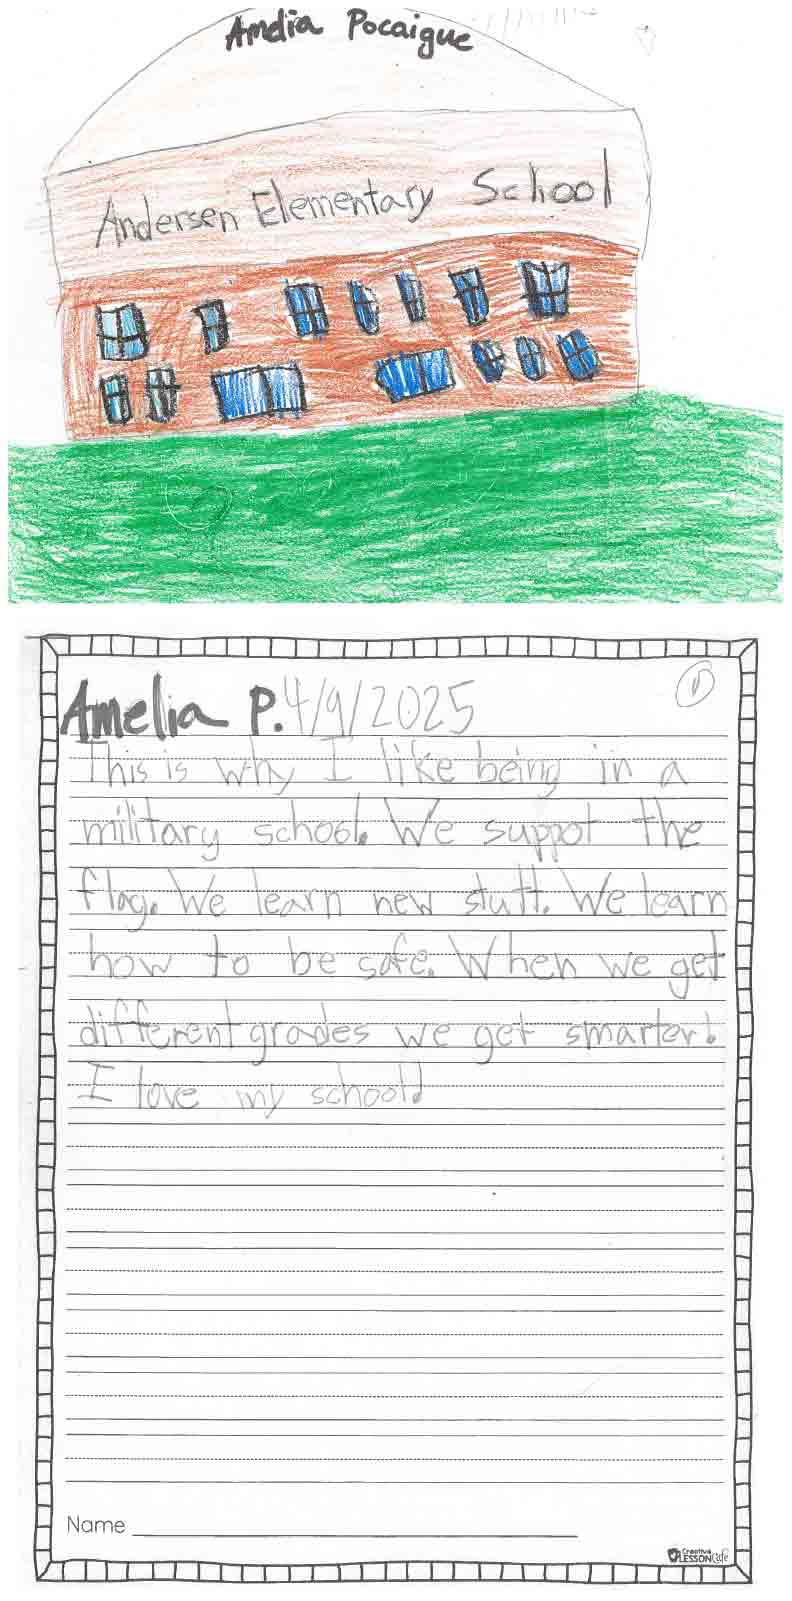 Amelia Pocaigue
Andersen Elementary School
Amelia P. 4/9/2025
1
This is why I like being in a
military school. We suppot the
flag. We learn new stuff. We learn
how to be safe. When we get
different grades we get smarter!
I love my school!
Name
Creative
LESSON Cafe